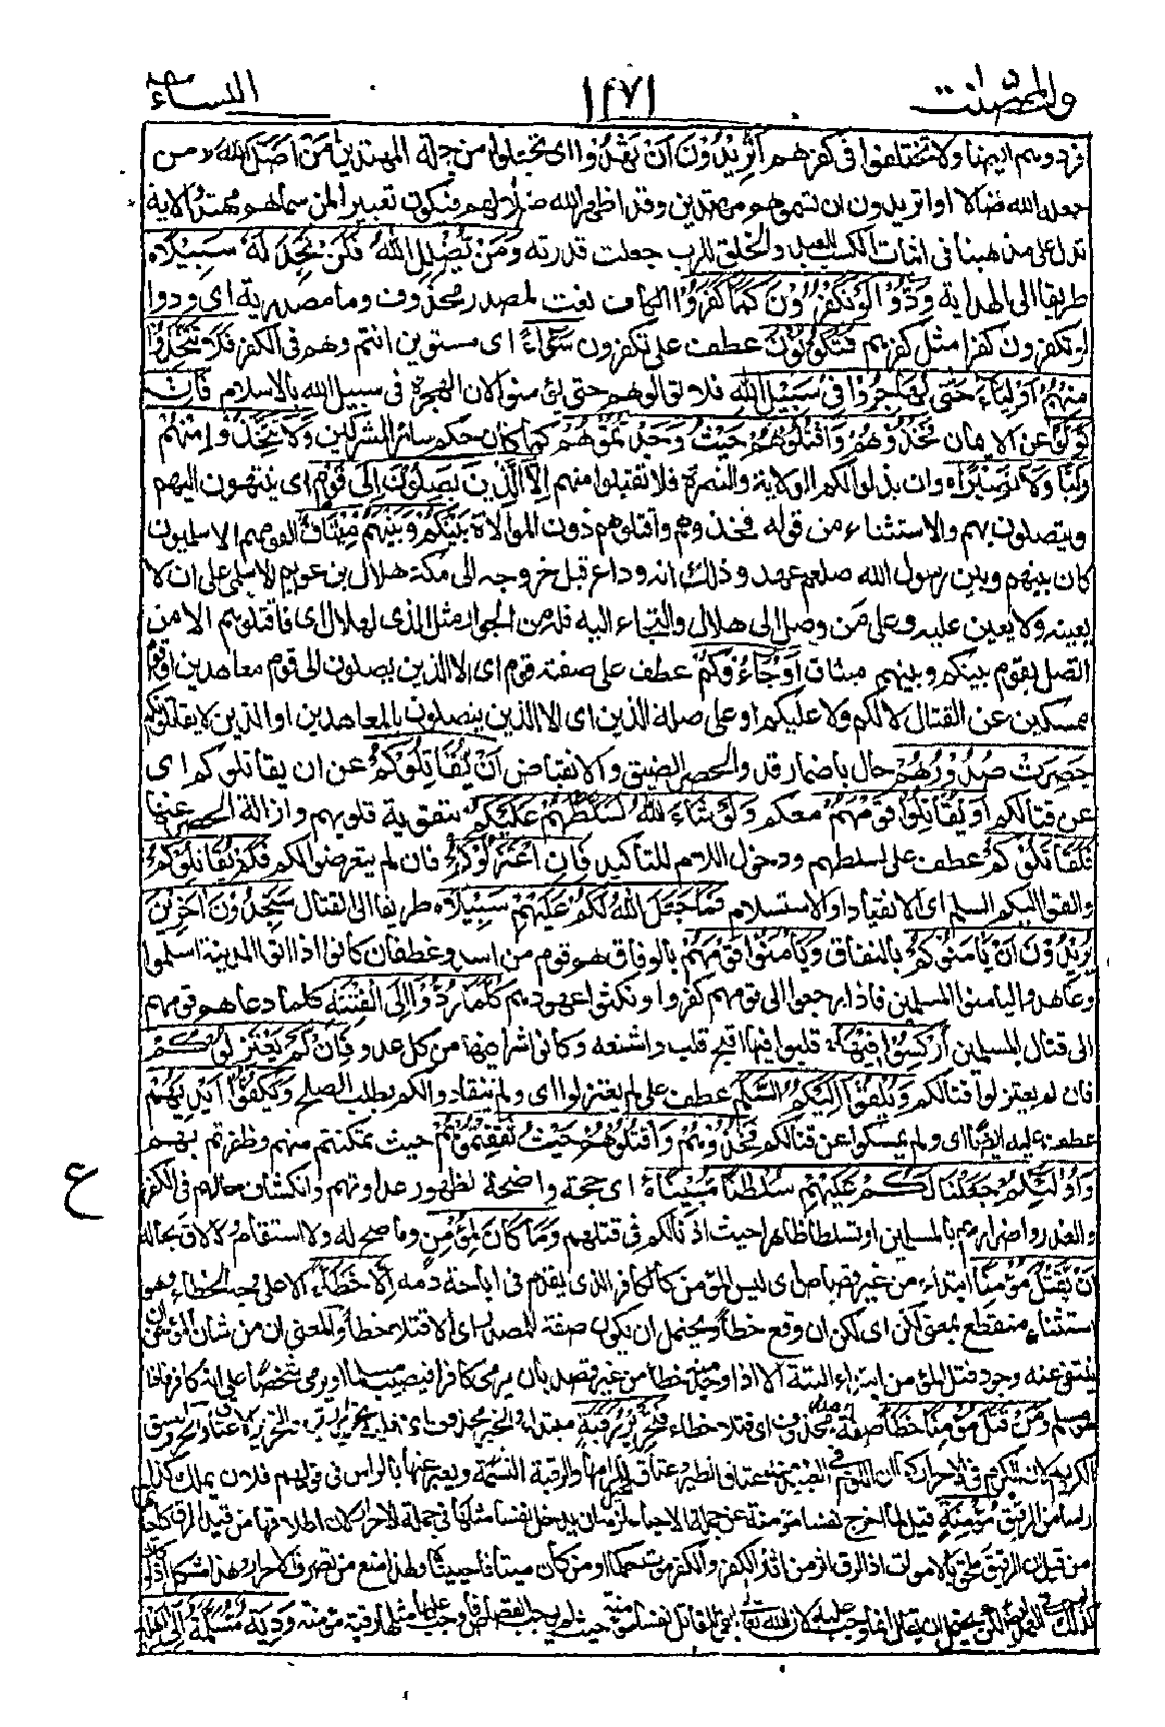 والمحصنت ١٤٧١ النساء
فردوهم اليهنا ولا تختلفوا فى كفرهم اَتُرِيْدُوْنَ اَنْ تَهْدُوْا اى تجعلوا من جملة المهتدين مَنْ اَضَلَّ اللّٰهُ من
جعله الله ضالا او اتريدون ان تسموهم مهتدين وقد اظهر الله ضلالهم فيكون تعييرا لمن سماهم مهتد الاية
تدل على مذهبنا فى اثبات الكسب للعبد والخلق للرب جعلت قدرته وَمَنْ يُّضْلِلِ اللّٰهُ فَلَنْ تَجِدَ لَهٗ سَبِيْلًا
طريقا الى الهداية وَدُّوْا لَوْ تَكْفُرُوْنَ كَمَا كَفَرُوْا الكاف نعت لمصدر محذوف وما مصدرية اى ودوا
لو تكفرون كفرا مثل كفرهم فَتَكُوْنُوْنَ عطف على تكفرون سَوَآءً اى مستوين انتم وهم فى الكفر فَلَا تَتَّخِذُوْا
مِنْهُمْ اَوْلِيَآءَ حَتّٰى يُهَاجِرُوْا فِيْ سَبِيْلِ اللّٰهِ فلا توالوهم حتى يؤمنوا لان الهجرة فى سبيل الله بالاسلام فَاِنْ
تَوَلَّوْا عن الايمان فَخُذُوْهُمْ وَاقْتُلُوْهُمْ حَيْثُ وَجَدْتُّمُوْهُمْ كما كان حكم سائر المشركين وَلَا تَتَّخِذُوْا مِنْهُمْ
وَلِيًّا وَّلَا نَصِيْرًا وان بذلوا لكم الولاية والنصرة فلا تقبلوا منهم اِلَّا الَّذِيْنَ يَصِلُوْنَ اِلٰى قَوْمٍ اى ينتهون اليهم
ويتصلون بهم والاستثناء من قوله فخذوهم واقتلوهم دون الموالاة بَيْنَكُمْ وَبَيْنَهُمْ مِّيْثَاقٌ القوم هم الاسلميون
كان بينهم وبين رسول الله صلعم عهد وذلك انه وادع قبل خروجه الى مكة هلال بن عويمر الاسلمى على ان لا
يعينه ولا يعين عليه وعلى من وصل الى هلال والتجاء اليه فله من الجوار مثل الذى لهلال اى فاقتلوهم الا من
اتصل بقوم بينكم وبينهم ميثاق اَوْ جَآءُوْكُمْ عطف على صفة قوم اى الا الذين يصلون الى قوم معاهدين او قوم
ممسكين عن القتال لا لكم ولا عليكم او على صلة الذين اى الا الذين يتصلون بالمعاهدين او الذين لا يقاتلونكم
حَصِرَتْ صُدُوْرُهُمْ حال باضمار قد والحصر الضيق والانقباض اَنْ يُّقَاتِلُوْكُمْ عن ان يقاتلوكم اى
عن قتالكم اَوْ يُقَاتِلُوْا قَوْمَهُمْ معكم وَلَوْ شَآءَ اللّٰهُ لَسَلَّطَهُمْ عَلَيْكُمْ بتقوية قلوبهم وازالة الحصر عنها
فَلَقَاتَلُوْكُمْ عطف على لسلطهم ودخول اللام للتأكيد فَاِنِ اعْتَزَلُوْكُمْ فان لم يتعرضوا لكم فَلَمْ يُقَاتِلُوْكُمْ
والقوا اليكم السلم اى الانقياد او الاستسلام فَمَا جَعَلَ اللّٰهُ لَكُمْ عَلَيْهِمْ سَبِيْلًا طريقا الى القتال سَتَجِدُوْنَ اٰخَرِيْنَ
يُرِيْدُوْنَ اَنْ يَّاْمَنُوْكُمْ بالنفاق وَيَاْمَنُوْا قَوْمَهُمْ بالوفاق هم قوم من اسد وغطفان كانوا اذا اتوا المدينة اسلموا
وعاهدوا ليأمنوا المسلمين فاذا رجعوا الى قومهم كفروا ونكثوا عهودهم كُلَّمَا رُدُّوْا اِلَى الْفِتْنَةِ كلما دعاهم قومهم
الى قتال المسلمين اُرْكِسُوْا فِيْهَا قلبوا فيها اقبح قلب واشنعه وكانوا شرا فيها من كل عدو فَاِنْ لَّمْ يَعْتَزِلُوْكُمْ
فان لم يعتزلوا قتالكم وَيُلْقُوْا اِلَيْكُمُ السَّلَمَ عطف على لم يعتزلوا اى ولم ينقادوا لكم بطلب الصلح وَيَكُفُّوْا اَيْدِيَهُمْ
عطف عليه ايضا اى ولم يمسكوا عن قتالكم فَخُذُوْهُمْ وَاقْتُلُوْهُمْ حَيْثُ ثَقِفْتُمُوْهُمْ حيث تمكنتم منهم وظفرتم بهم
وَاُولٰٓئِكُمْ جَعَلْنَا لَكُمْ عَلَيْهِمْ سُلْطٰنًا مُّبِيْنًا اى حجة واضحة لظهور عداوتهم وانكشاف حالهم فى الكفر
ع
والغدر واضرارهم بالمسلمين او تسلطا ظاهرا حيث اذنا لكم فى قتلهم وَمَا كَانَ لِمُؤْمِنٍ وما صح له ولا استقام ولا لاق بحاله
اَنْ يَّقْتُلَ مُؤْمِنًا ابتداء من غير قصاص اى ليس المؤمن كالكافر الذى يقدم فى اباحة دمه اِلَّا خَطَأً الا على وجه الخطاء وهو
استثناء منقطع بمعنى لكن اى لكن ان وقع خطأ ويحتمل ان يكون صفة لمصدر اى الا قتلا خطأ والمعنى ان من شان المؤمن ان
ينتفى عنه وجود قتل المؤمن ابتداء البتة الا اذا وجد منه خطأ من غير قصد بان يرمى كافرا فيصيب مسلما او يرمى شخصا على انه كافر فاذا
هو مسلم وَمَنْ قَتَلَ مُؤْمِنًا خَطَأً صفة مصدر محذوف اى قتلا خطاء فَتَحْرِيْرُ رَقَبَةٍ مبتدأ والخبر محذوف اى فعليه تحرير رقبة والتحرير الاعتاق والحر والعتيق
الكريم لان الكرم فى الاحرار كما ان اللؤم فى العبيد ومنه عتاق الطير وعتاق الخيل لكرامها والرقبة النسمة ويعبر عنها بالراس فى قولهم فلان يملك كذا
راسا من الرقيق مُّؤْمِنَةٍ قيل لما اخرج نفسا مؤمنة عن جملة الاحياء لزمه ان يدخل نفسا مثلها فى جملة الاحرار لان اطلاقها من قيد الرق كاحيائها
من قبل ان الرقيق ملحق بالاموات اذ الرق اثر من اثار الكفر والكفر موت حكما او من كان ميتا فاحييناه ولهذا منع من تصرف الاحرار وهذا مشكل اذ لو كان